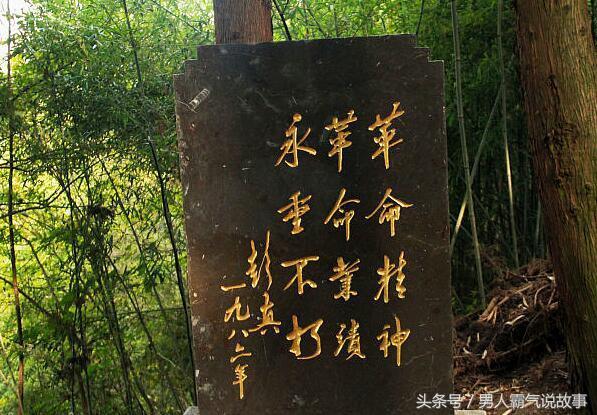 革命精神
革命業績
永垂不朽
彭真
一九八二年
头条号 / 男人霸气说故事